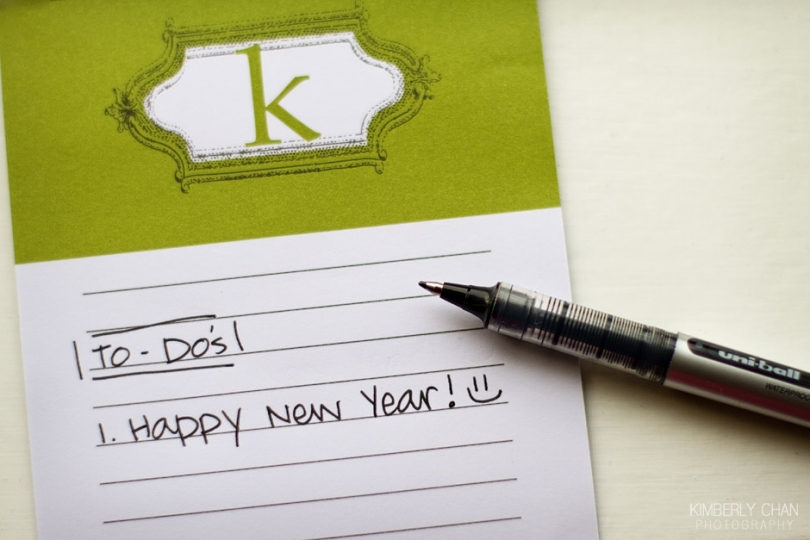 k
To-Do's
1. Happy New Year! :)
uni-ball
WATERPROOF
KIMBERLY CHAN
PHOTOGRAPHY